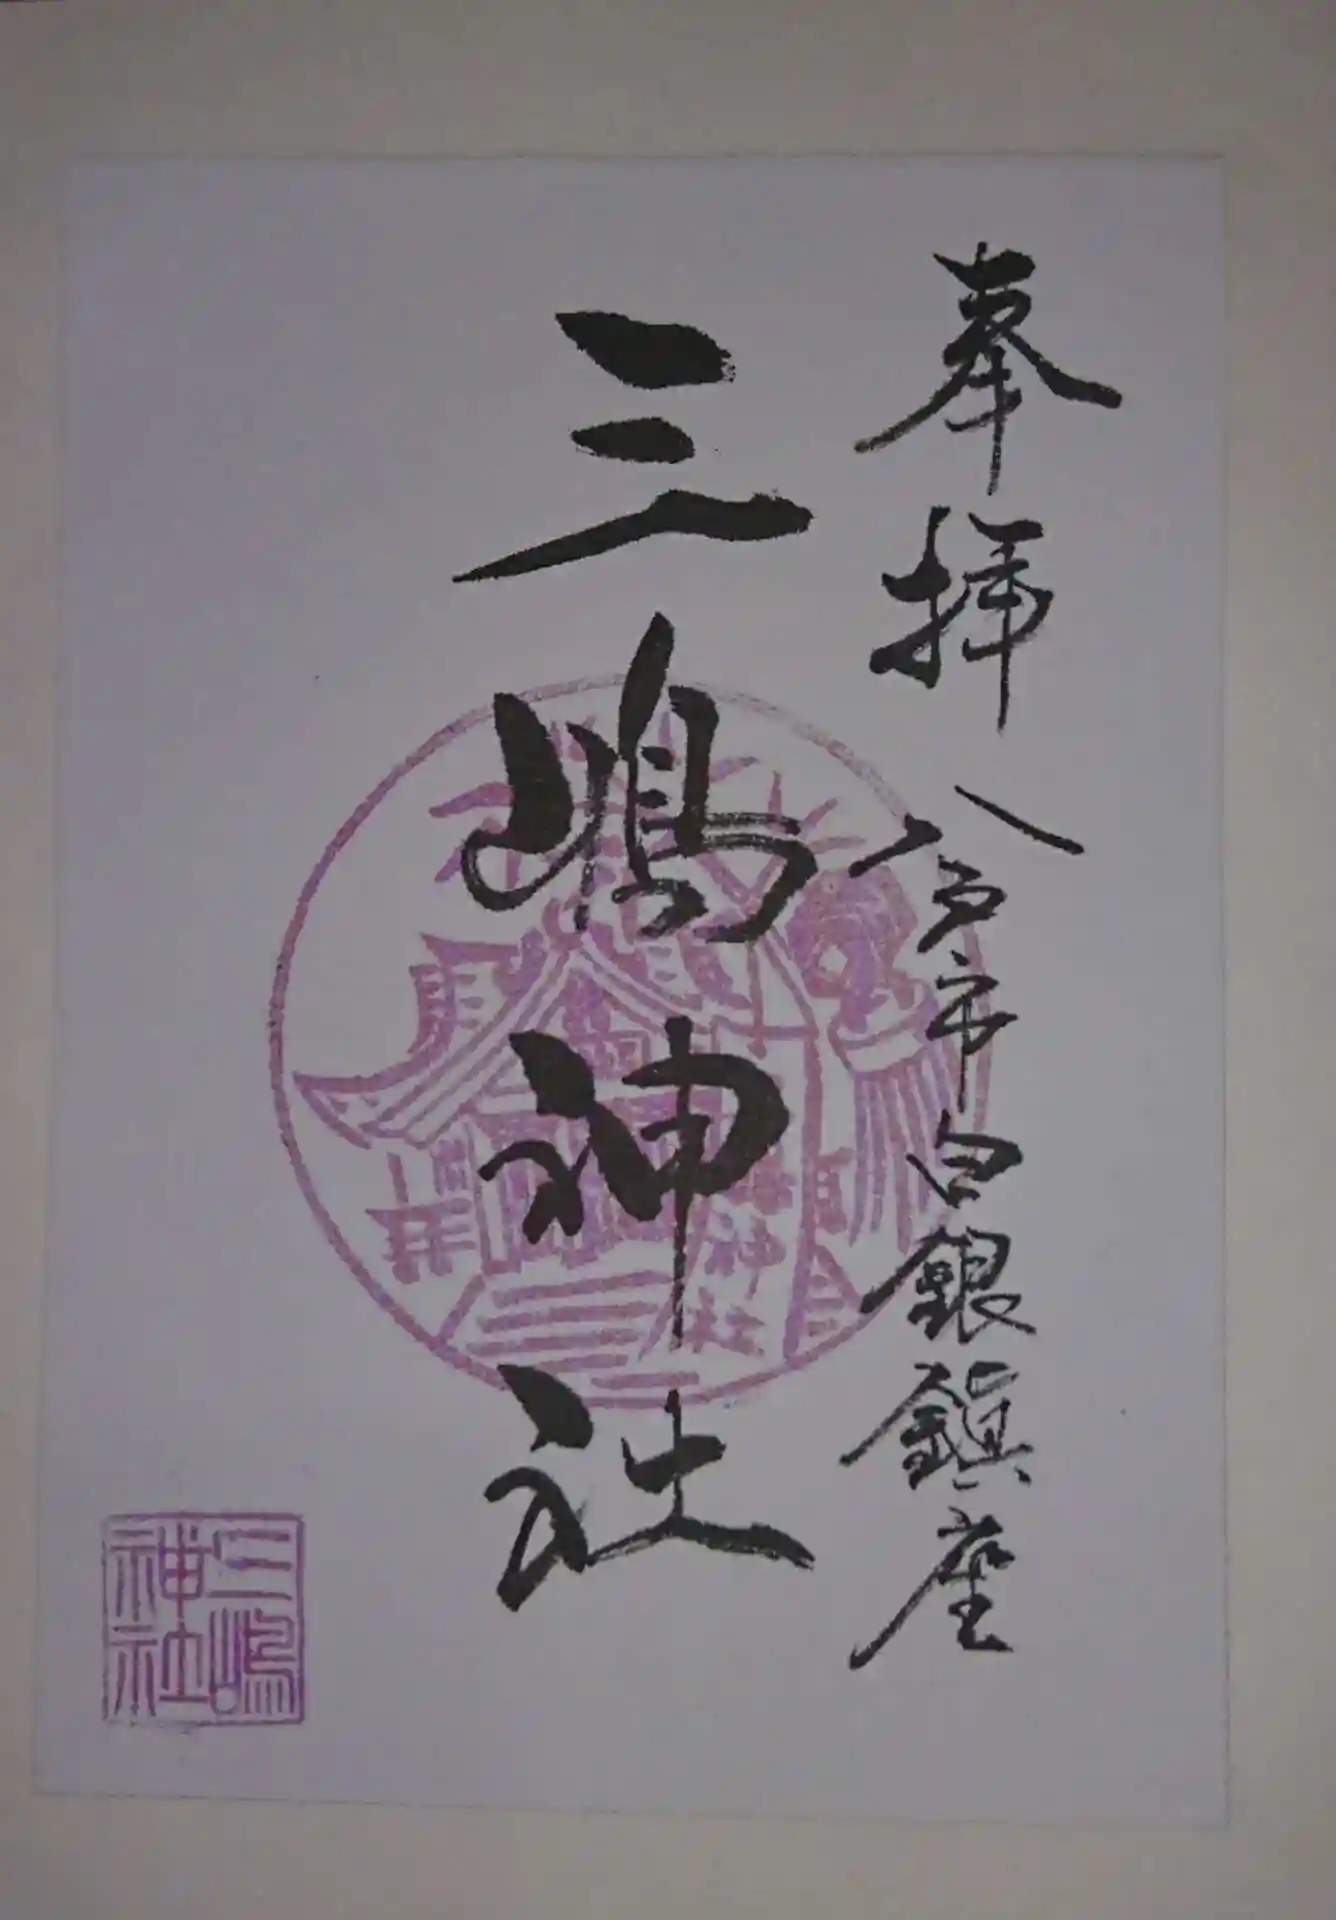 奉拝 八戸市白銀鎮座
三嶋神社
神社
三嶋
神社